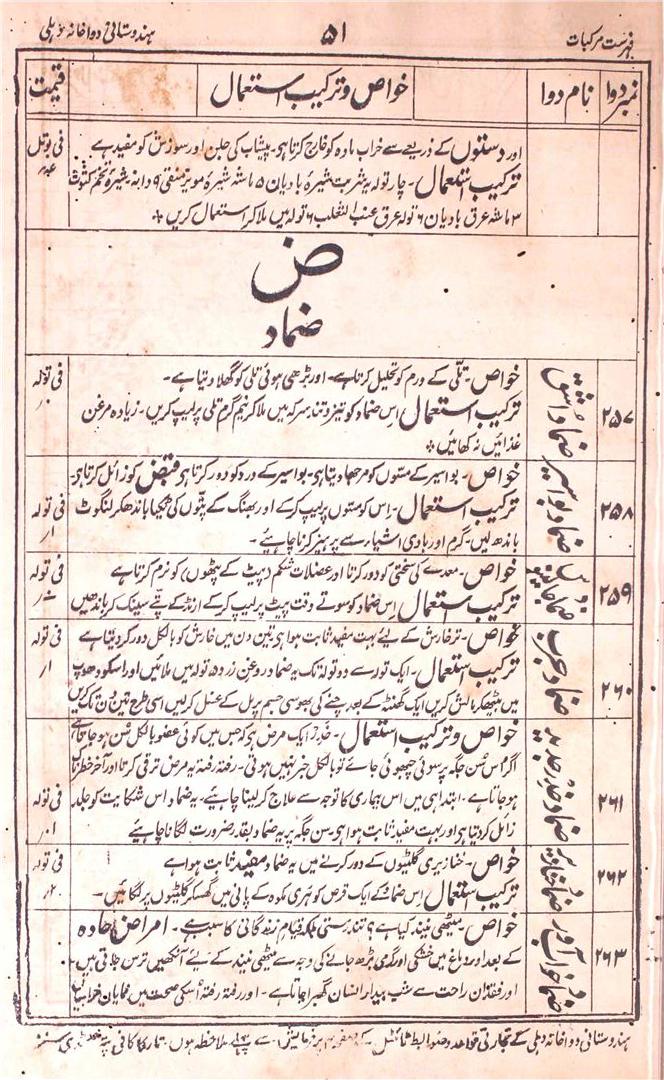 فہرست مرکبات ۵۱ ہندوستانی دواخانہ دہلی
نمبر دوا نام دوا خواص و ترکیب استعمال قیمت
اور دستوں کے ذریعے سے خراب مادہ کو خارج کرتا ہی۔ پیشاب کی جلن اور سوزش کو مفید ہے فی بوتل
ترکیب استعمال۔ چار تولہ یہ شربت شیرۂ بادیان ۵ ماشہ شیرۂ مویز منقی ۹ دانہ شیرۂ تخم کثوث
۳ ماشہ عرق بادیان ۶ تولہ عرق عنب الثعلب ۶ تولہ میں ملا کر استعمال کریں ٭
ض
ضماد
۲۵۷ ضماد اشق خواص۔ تلّی کے ورم کو تحلیل کرتا ہے۔ اور بڑھی ہوئی تلی کو گھلا دیتا ہے۔ فی تولہ
ترکیب استعمال اِس ضماد کو تیز و تند سرکہ میں ملا کر نیم گرم تلی پر لیپ کریں۔ زیادہ مرغن
غذائیں نہ کھائیں ٭
۲۵۸ ضماد بواسیر خواص۔ بواسیر کے مسّوں کو مرجھا دیتا ہی۔ بواسیر کے درد کو دور کرتا ہی قبض کو زائل کرتا ہی۔
ترکیب استعمال۔ اِس کو مسّوں پر لیپ کر کے اور بھنگ کے پتّوں کی ٹکیا باندھکر لنگوٹ فی تولہ ۱ر
باندھ لیں۔ گرم اور بادی اشیاء سے پرہیز کرنا چاہیئے۔
۲۵۹ ضماد جالینوس خواص۔ معدے کی سختی کو دور کرتا اور عضلات شکم و پیٹ کے پٹھوں کو نرم کرتا ہے فی تولہ
ترکیب استعمال اِس ضماد کو سوتے وقت پیٹ پر لیپ کر کے ارنڈ کے پتے سینک کر باندھیں
۲۶۰ ضماد جرب خواص۔ تر خارش کے لیئے بہت مفید ثابت ہوا ہی تین دن میں خارش کو بالکل دور کر دیتا ہے فی تولہ
ترکیب استعمال۔ ایک تولہ سے دو تولہ تک یہ ضماد روغن زرد ۵ تولہ میں ملائیں اور اسکو دھوپ ۱ر
میں بیٹھکر مالش کریں ایک گھنٹہ کے بعد چنے کی بھوسی جسم پر مل کے غسل کر لیں اسی طرح تین دن تک کریں
۲۶۱ ضماد خدر جدید خواص و ترکیب استعمال۔ خدر ایک مرض ہی کہ جس میں کوئی عضو بالکل سُن ہو جاتا ہی
اگر اس سُن جگہ پر سوئی چبھوئی جائے تو بالکل خبر نہیں ہوتی۔ رفتہ رفتہ یہ مرض ترقی کرتا اور آخر خطرناک
ہو جاتا ہے۔ ابتدا ہی میں اس بیماری کا توجہ سے علاج کر لینا چاہیئے۔ یہ ضماد اس شکایت کو جلد فی تولہ
زائل کر دیتا ہی اور بہت مفید ثابت ہوا ہی۔ سن جگہ پر یہ ضماد بقدر ضرورت لگانا چاہیئے
۲۶۲ ضماد خنازیر خواص۔ خنازیری گلٹیوں کے دور کرنے میں یہ ضماد مفید ثابت ہوا ہے فی تولہ
ترکیب استعمال اِس ضماد کے ایک قرص کو ہری مکوہ کے پانی میں گھسکر گلٹیوں پر لگائیں۔ ۲ر
۲۶۳ ضماد خواب آور خواص۔ میٹھی نیند کیا ہے؟ تندرستی بلکہ قیام زندگانی کا سبب ہے۔ امراض حادہ
کے بعد اور دماغ میں خشکی اور گرمی بڑھ جانے کی وجہ سے میٹھی نیند کے لیئے آنکھیں ترس جاتی ہیں۔
اور فقدان راحت سے شب بیدار انسان گھبرا جاتا ہے۔ اور رفتہ رفتہ اسکی صحت میں نمایاں خرابیاں
ہندوستانی دواخانہ دہلی کے تجارتی قواعد و ضوابط ٹائٹل کے صفحہ ۳ پر فرمایش سے پہلے ملاحظہ ہوں۔ تار کا کافی پتہ